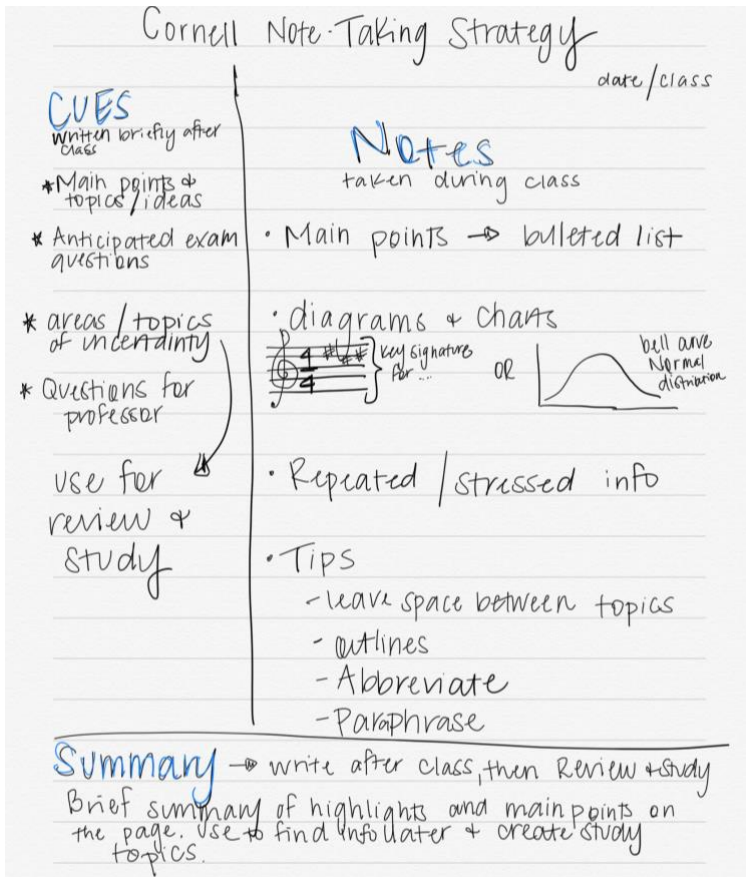 Cornell Note-Taking Strategy
date/class
CUES
written briefly after
class
*Main points &
topics/ideas
* Anticipated exam
questions
* areas/topics
of uncertainty
* Questions for
professor
use for
review &
study
Notes
taken during class
• Main points → bulleted list
• diagrams & charts
4
4
key signature
for...
OR
bell curve
Normal
distribution
• Repeated/stressed info
• Tips
- leave space between topics
- outlines
- Abbreviate
- Paraphrase
Summary → write after class, then Review & study
Brief summary of highlights and main points on
the page. Use to find info later & create study
topics.